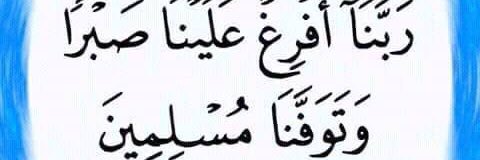 رَبَّنَآ أَفْرِغْ عَلَيْنَا صَبْرًا
وَتَوَفَّنَا مُسْلِمِينَ